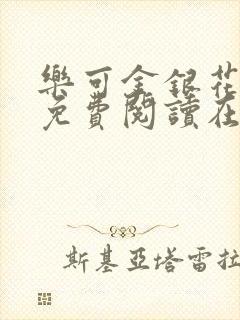 樂可金銀花
免費閱讀在
斯基亞塔雷拉